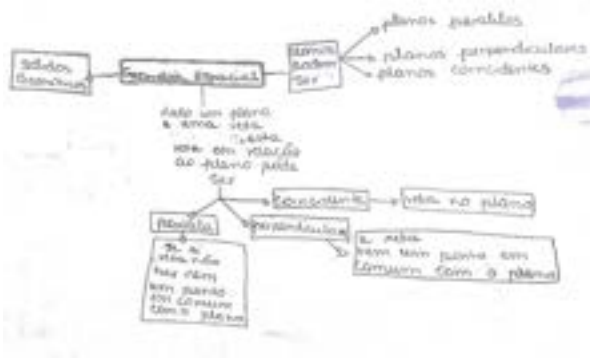 planos paralelos
sólidos
Geométricos
Geometria Espacial
planos
podem
ser
planos perpendiculares
planos coincidentes
dado um plano
e uma reta
esta
reta em relação
ao plano pode
ser
coincidente
reta no plano
paralela
perpendicular
Se a
reta não
tem nem
um ponto
em comum
com o plano
a reta
tem um ponto em
comum com o plano